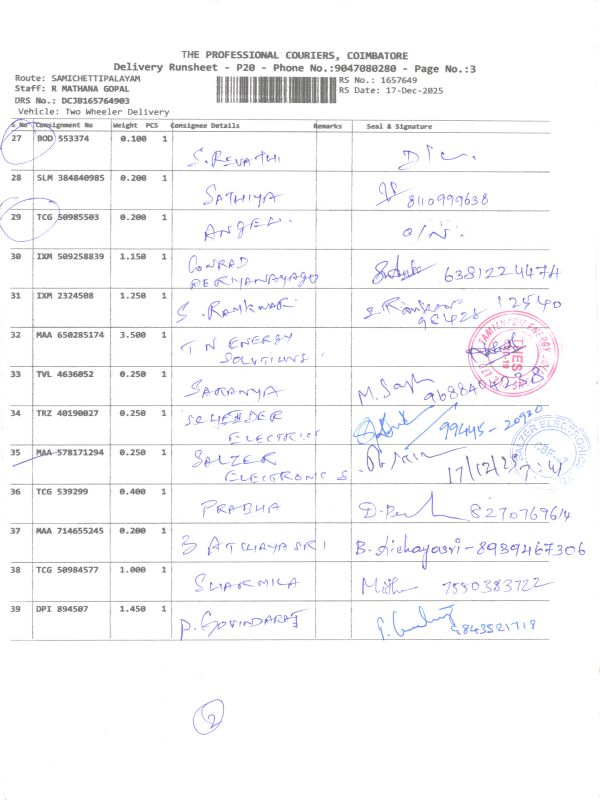 THE PROFESSIONAL COURIERS, COIMBATORE
Delivery Runsheet - P20 - Phone No.:9047080280 - Page No.:3
Route: SAMICHETTIPALAYAM
Staff: R MATHANA GOPAL
DRS No.: DCJB165764903
Vehicle: Two Wheeler Delivery
RS No.: 1657649
RS Date: 17-Dec-2025
S_No Consignment No Weight PCS Consignee Details Remarks Seal & Signature
27 BOD 553374 0.100 1 S.REVATHI
28 SLM 384840985 0.200 1 SATHIYA 8110999638
29 TCG 50985503 0.200 1 ANGEL.
30 IXM 509258839 1.150 1 CONRAD PERIYANAYAGO 6381224474
31 IXM 2324508 1.250 1 S. RAMKUMAR 98428 12540
32 MAA 650285174 3.500 1 T N ENERGY SOLUTIONS
33 TVL 4636052 0.250 1 SARANYA 9688404238
34 TRZ 40190027 0.250 1 SCHENDER ELECTRIC 99445-20930
35 MAA 578171294 0.250 1 SALZER ELECTRONICS 17/12/25
SALZER ELECTRONICS
36 TCG 539299 0.400 1 PRABHA 8270769614
37 MAA 714655245 0.200 1 B ATCHAYASRI B. Atchayasri-8939467306
38 TCG 50984577 1.000 1 SHARMILA 7550383722
39 DPI 894507 1.450 1 P.GOVINDARAJ 9843521718
2